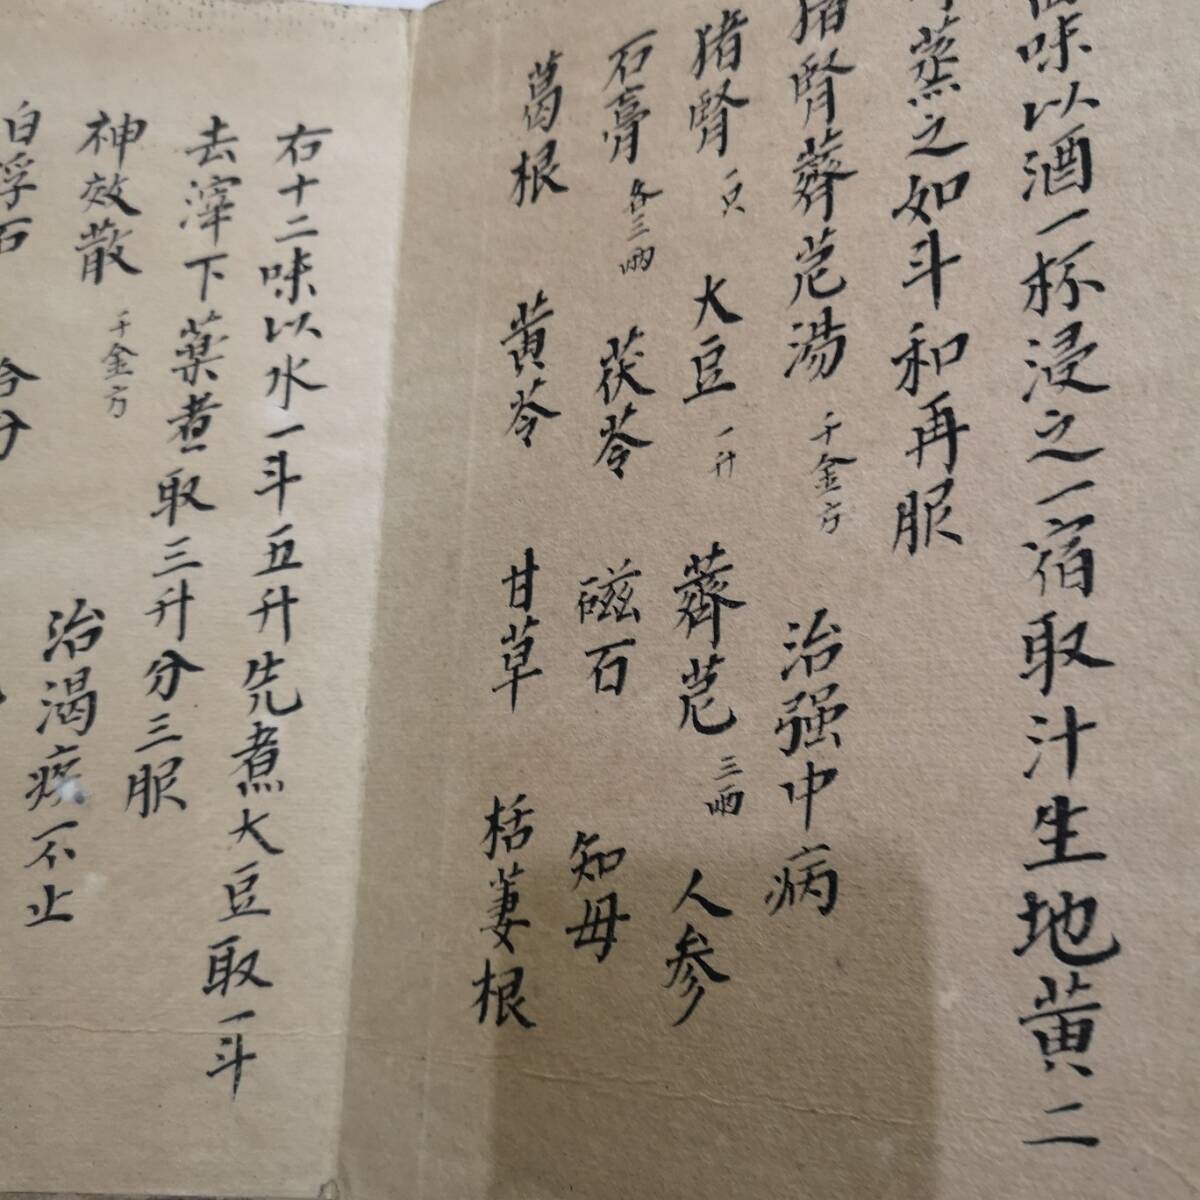 味以酒一杯浸之一宿取汁生地黄二
蒸之如斗和再服
猪腎薺苨湯 千金方 治强中病
猪腎 一具 大豆 一升 薺苨 三両 人参
石膏 各三両 茯苓 磁石 知母
葛根 黄芩 甘草 栝蔞根
右十二味以水一斗五升先煮大豆取一斗
去滓下薬煮取三升分三服
神效散 千金方 治渴疾不止
白浮石 蛤